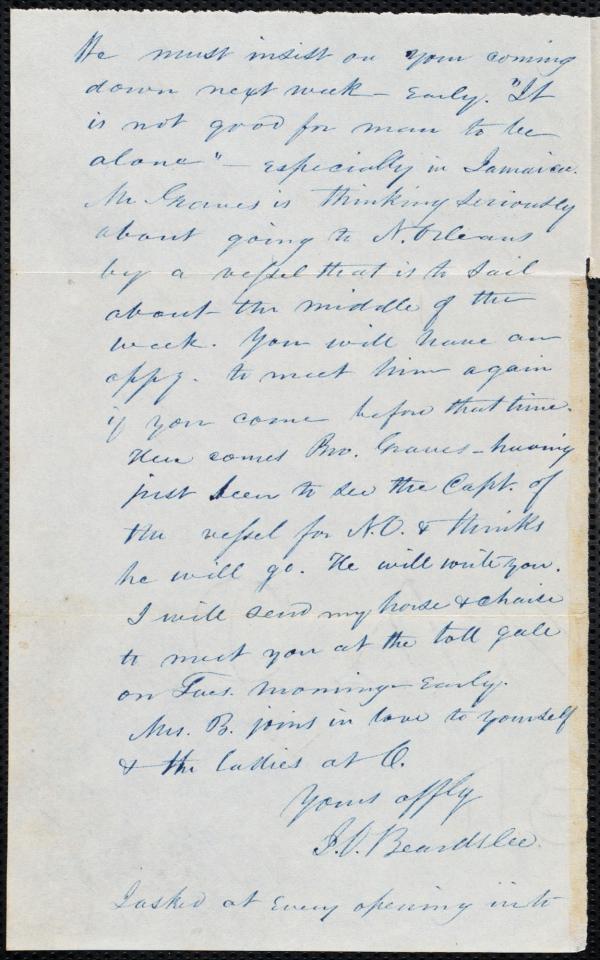 We must insist on your coming
down next week – Early. "It
is not good for man to be
alone" – especially in Jamaica.
Mr Graves is thinking seriously
about going to N. Orleans
by a vessel that is to sail
about the middle of the
week. You will have an
oppy. to meet him again
if you come before that time.
Here comes Bro. Graves – having
just been to see the Capt. of
the vessel for N.O. & thinks
he will go. He will write you.
I will send my horse & chaise
to meet you at the toll gate
on Tues. morning – Early.
Mrs. B. joins in love to yourself
& the ladies at O.
Yours affly
J.O. Beardslee.
I asked at every opening into